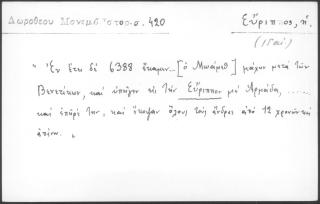 Δωροθέου Μονεμβ. Ἱστορ. σ. 420
Εὔριππος, ἡ.
(1541)
"Ἐν ἔτει δὲ 6388 ἔκαμεν... [ὁ Μωάμεθ] μάχην μετὰ τῶν
Βενετίκων, καὶ ὑπῆγεν εἰς τὴν Εὔριππον μὲ Ἀρμάδα, ......
καὶ ἐπῆρέ την, καὶ ἔκοψαν ὅλους τοὺς ἄνδρας ἀπὸ 12 χρονῶν καὶ
ἀπάνω. "